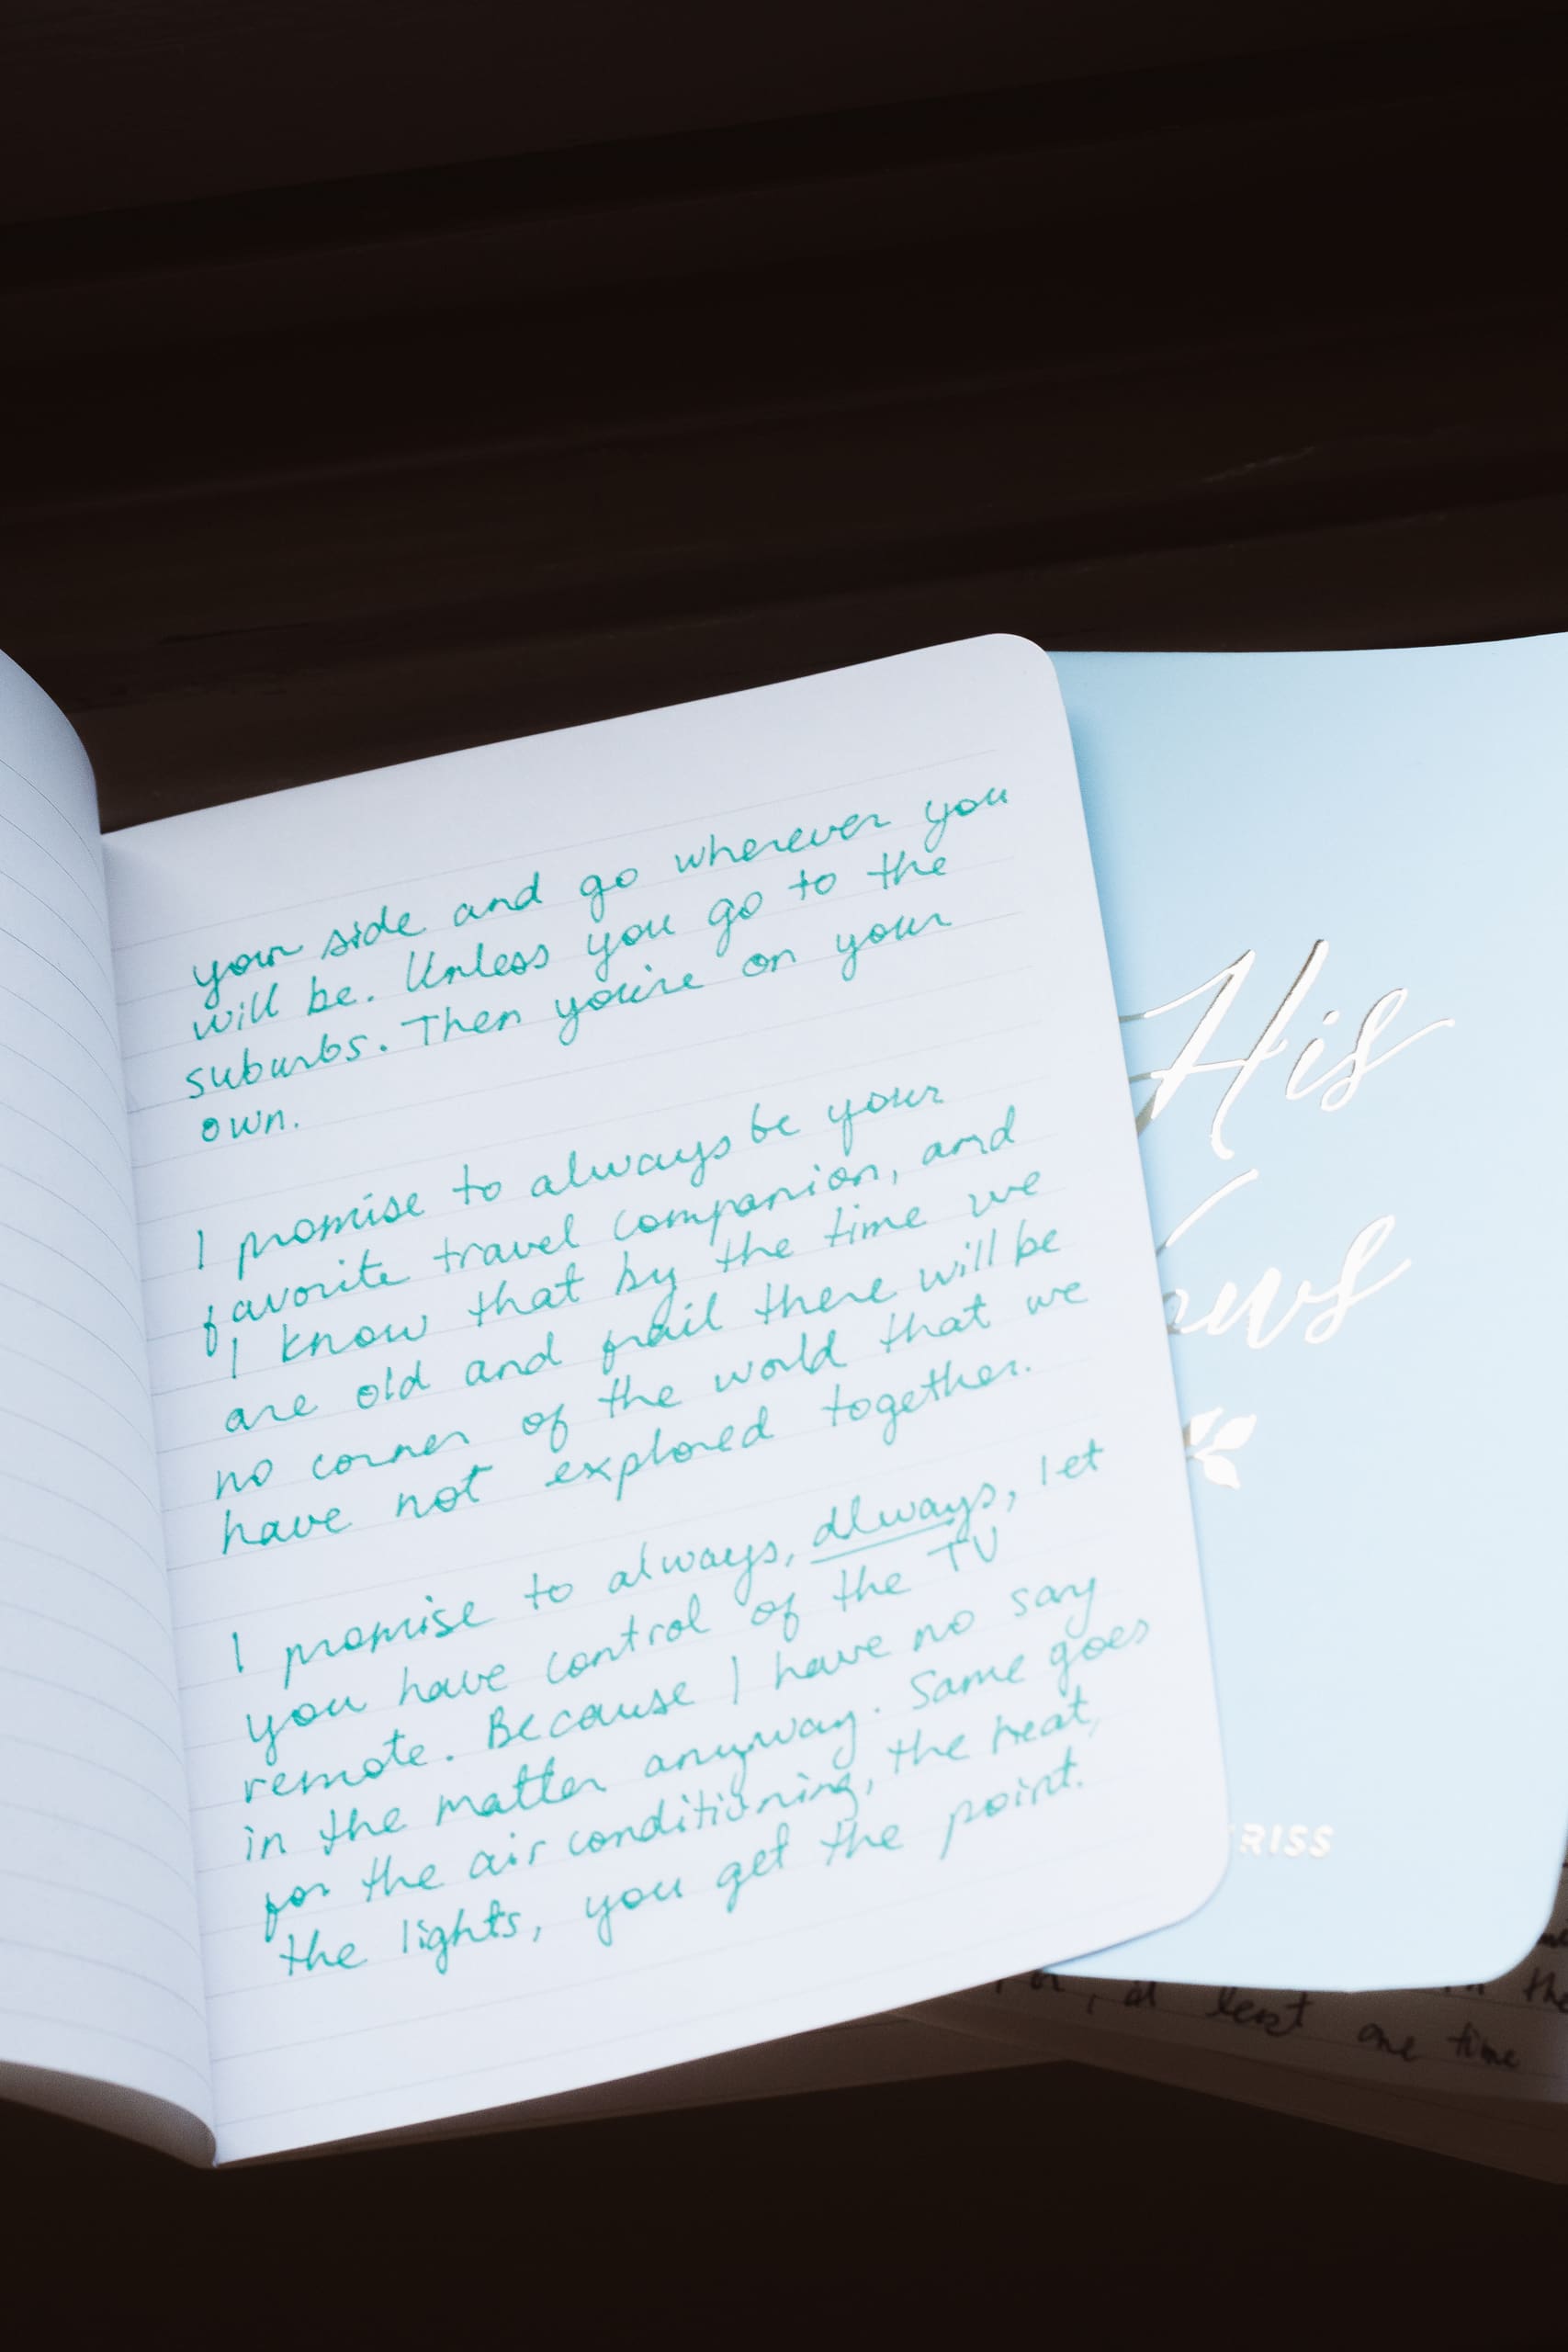 your side and go wherever you
will be. Unless you go to the
suburbs. Then you're on your
own.
I promise to always be your
favorite travel companion, and
I know that by the time we
are old and frail there will be
no corner of the world that we
have not explored together.
I promise to always, always, let
you have control of the TV
remote. Because I have no say
in the matter anyway. Same goes
for the air conditioning, the heat,
the lights, you get the point.
His
ows
RISS
at least one time